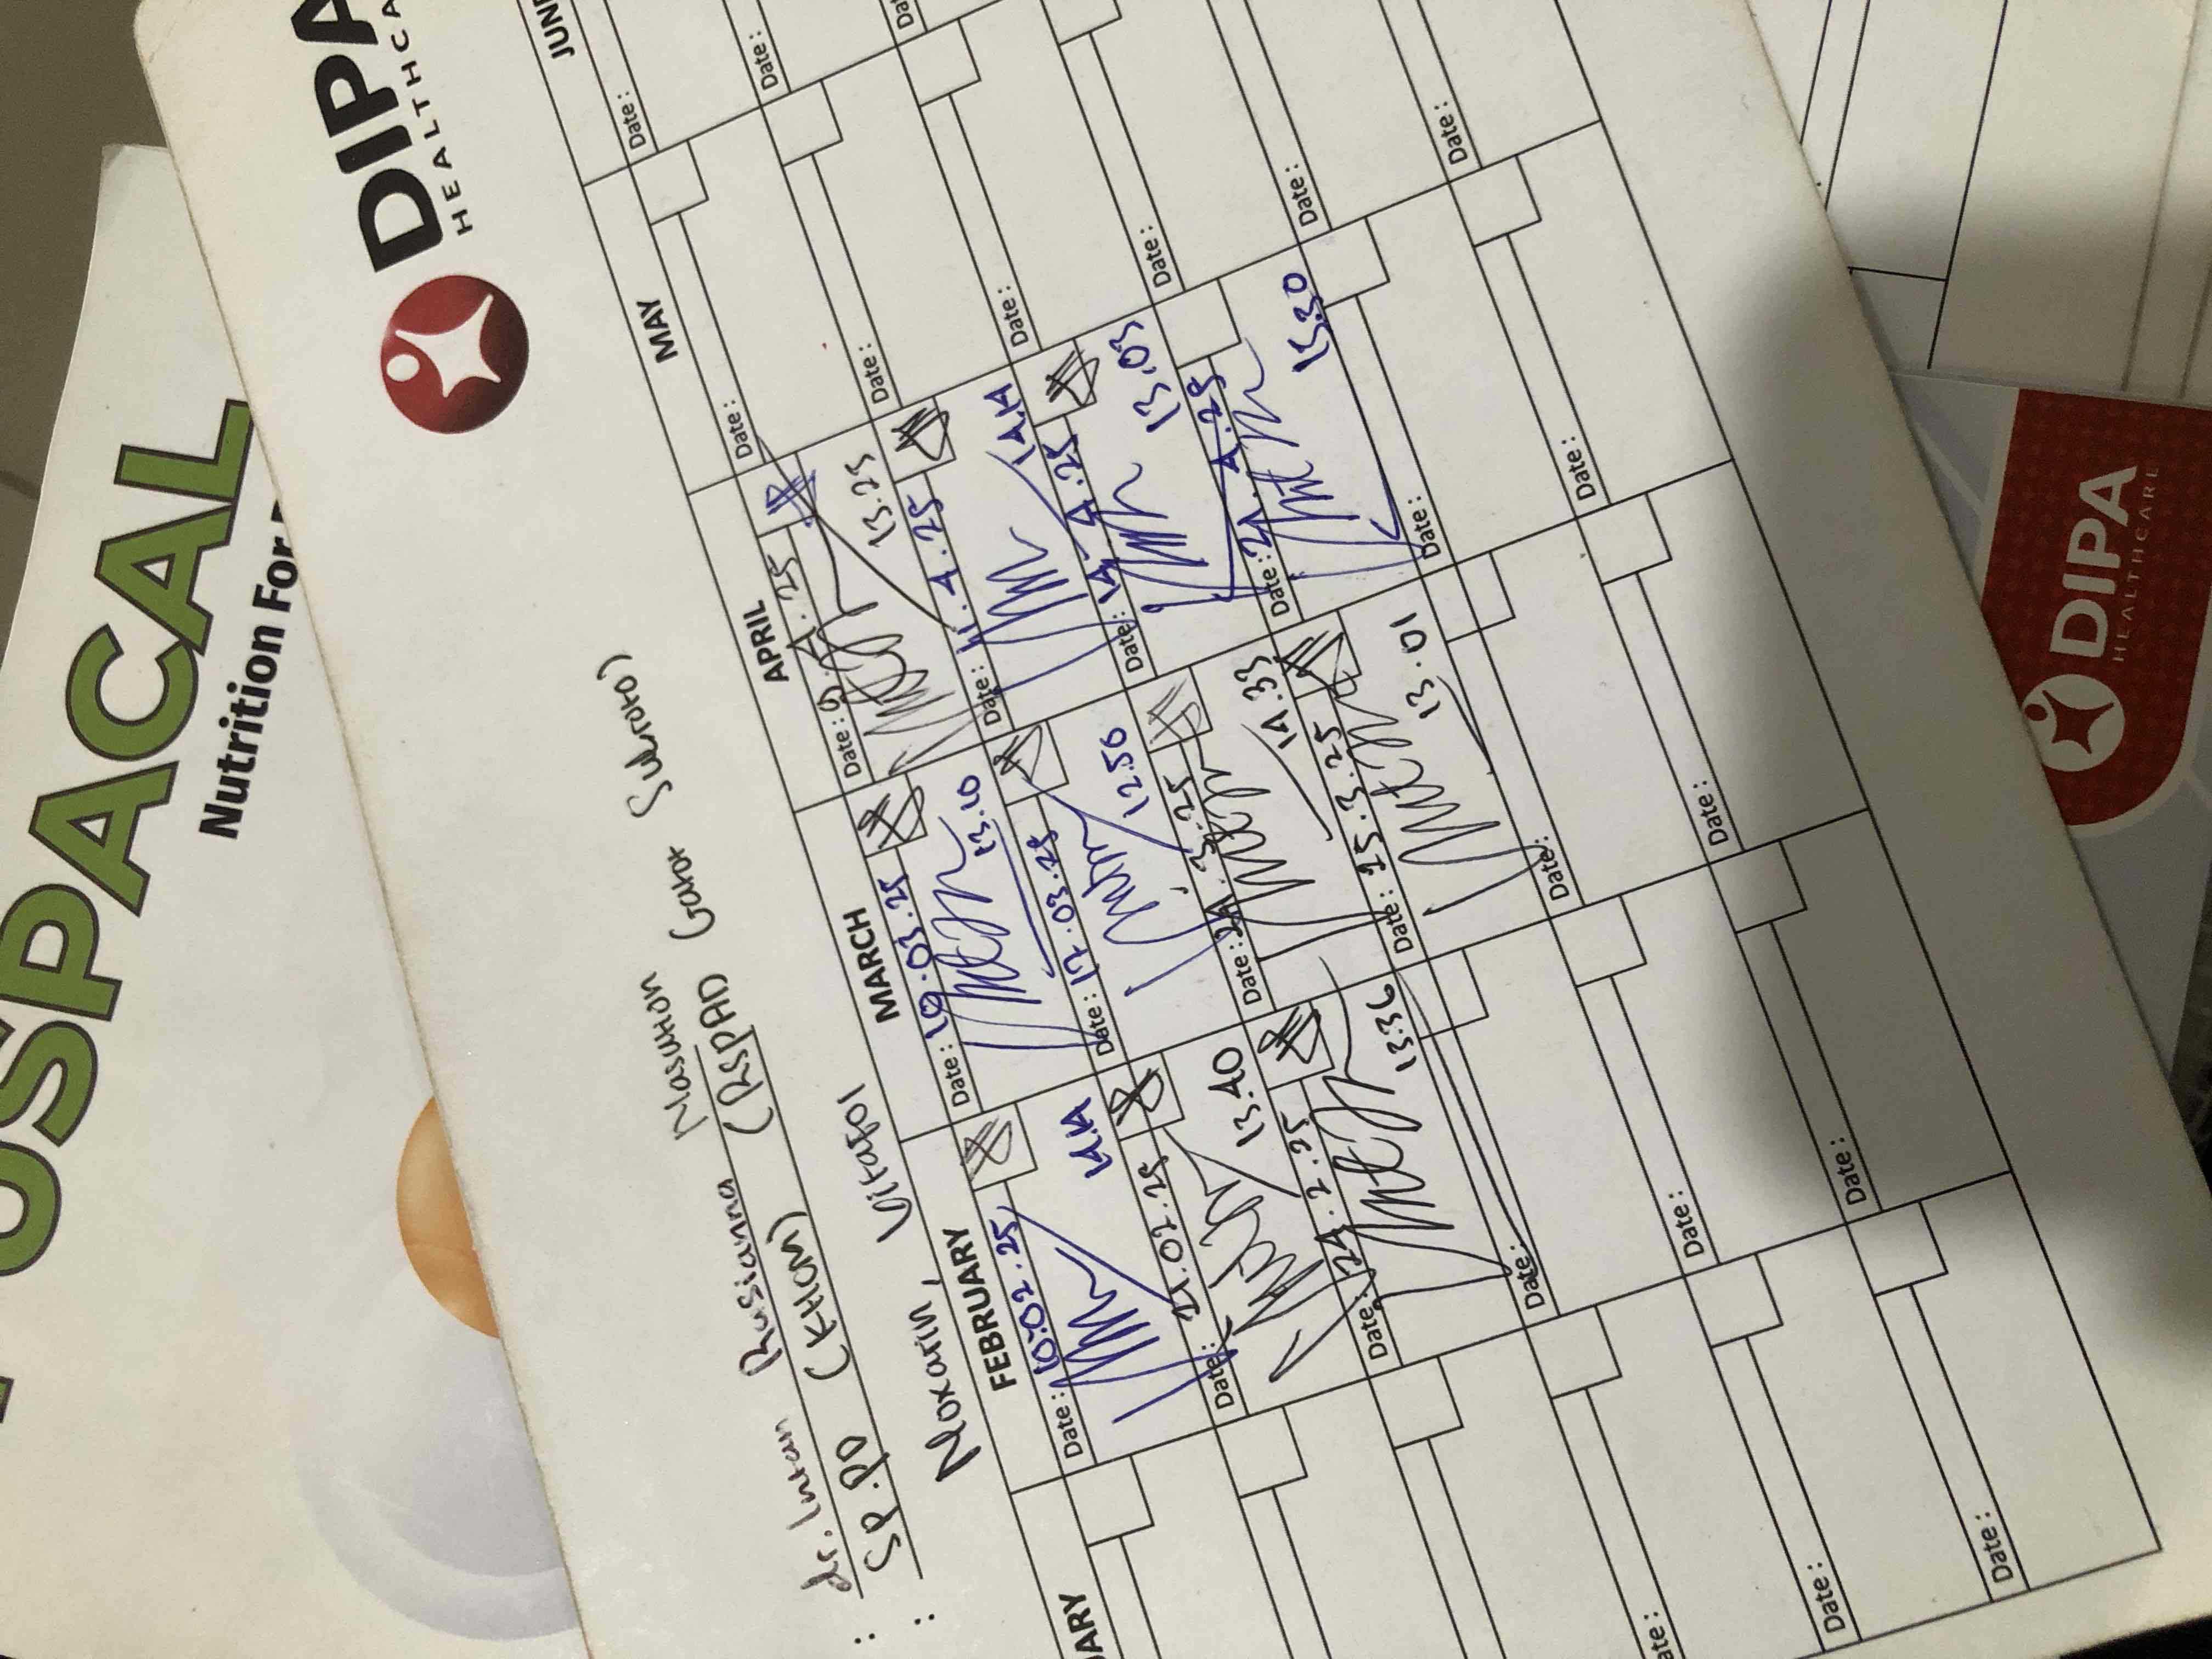 OSPACAL
Nutrition For
DIPA
HEALTHCA
: dr. Intan Russianna Nasution
SP.PD (KHOM) (RSPAD Gatot Subroto)
: Noxcarin, Vitafol
UARY
FEBRUARY
MARCH
APRIL
MAY
JUNE
Date: 10.02.25
14.14
Date: 21.02.25
13.40
Date: 24.2.25
13.36
Date:
Date:
Date:
Date: 10.03.25
13.10
Date: 17.03.25
12.56
Date: 24.3.25
14.33
Date: 25.3.25
13.01
Date:
Date:
Date: 9.4.25
13.25
Date: 11.4.25
14.14
Date: 14.4.25
13.03
Date: 24.4.25
13.30
Date:
Date:
Date:
Date:
Date:
Date:
Date:
Date:
Date:
Date:
Date:
Date:
Date:
DIPA
HEALTHCARE